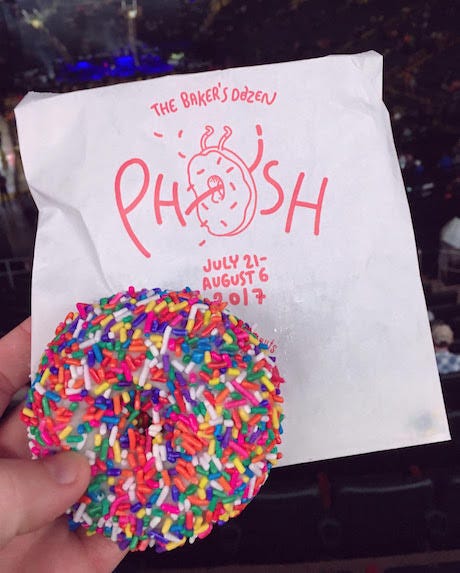 THE BAKER'S DOZEN
PHISH
JULY 21-
AUGUST 6
2017